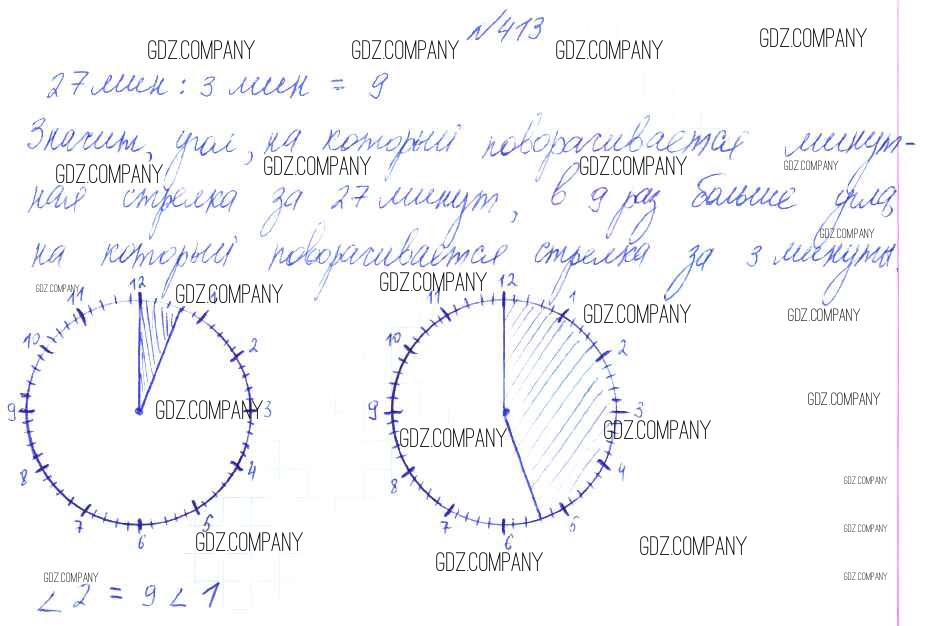 №413
GDZ.COMPANY GDZ.COMPANY GDZ.COMPANY GDZ.COMPANY
27 мин : 3 мин = 9
Значит, угол, на который поворачивается минут-
GDZ.COMPANY GDZ.COMPANY GDZ.COMPANY GDZ.COMPANY
ная стрелка за 27 минут, в 9 раз больше угла,
GDZ.COMPANY
на который поворачивается стрелка за 3 минуты.
GDZ.COMPANY GDZ.COMPANY GDZ.COMPANY
12 1 2 3 4 5 6 7 8 9 10 11
12 1 2 3 4 5 6 7 8 9 10 11
GDZ.COMPANY GDZ.COMPANY
GDZ.COMPANY GDZ.COMPANY
GDZ.COMPANY GDZ.COMPANY
GDZ.COMPANY
GDZ.COMPANY GDZ.COMPANY GDZ.COMPANY
GDZ.COMPANY GDZ.COMPANY GDZ.COMPANY
∠2 = 9∠1